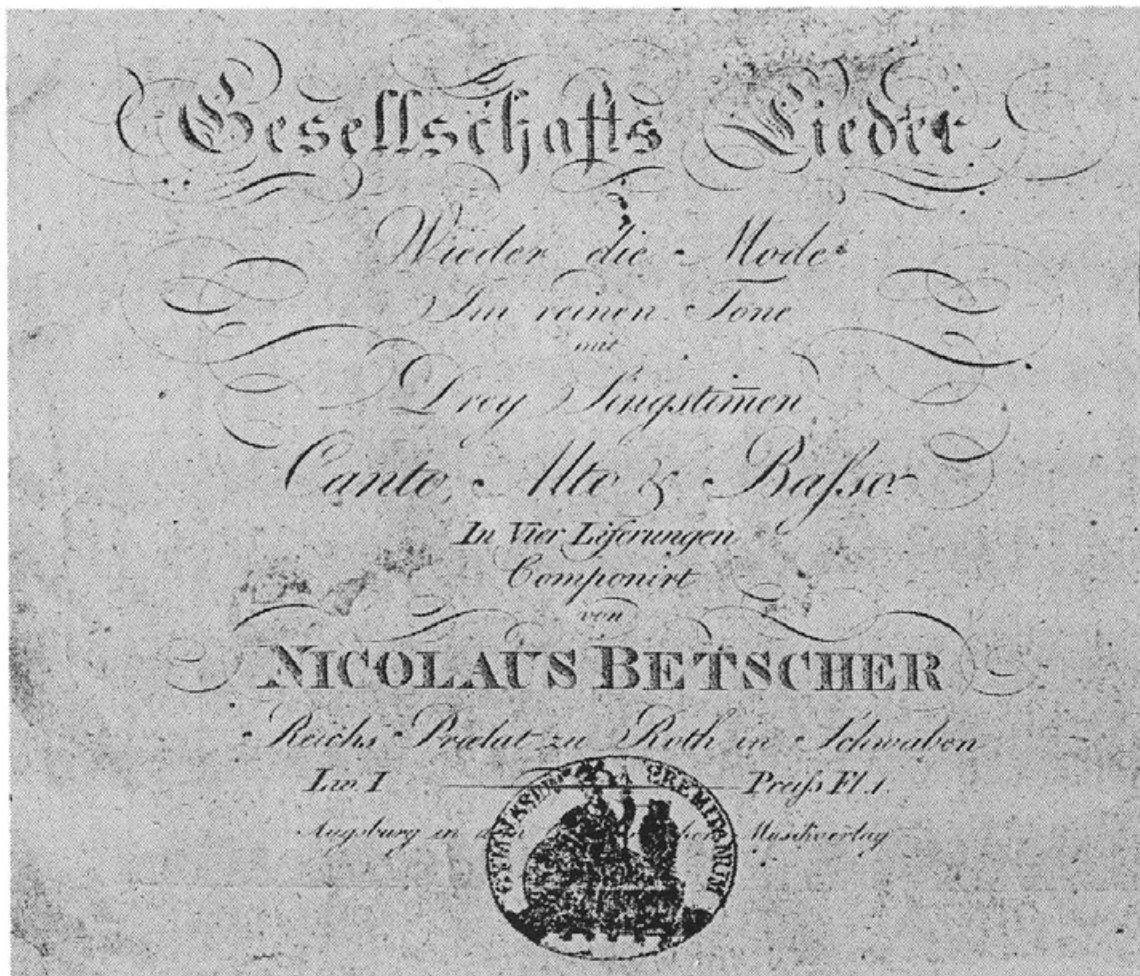 Gesellschafts Lieder
Wieder die Mode
Im reinen Tone
mit
Drey Singstim̅en
Canto, Alto & Baſso
In Vier Liferungen
Componirt
von
NICOLAUS BETSCHER
Reichs Prælat zu Roth in Schwaben
Lw. I Preiſs Fl. 1.
Augsburg in Musikverlag
EREMITANUM